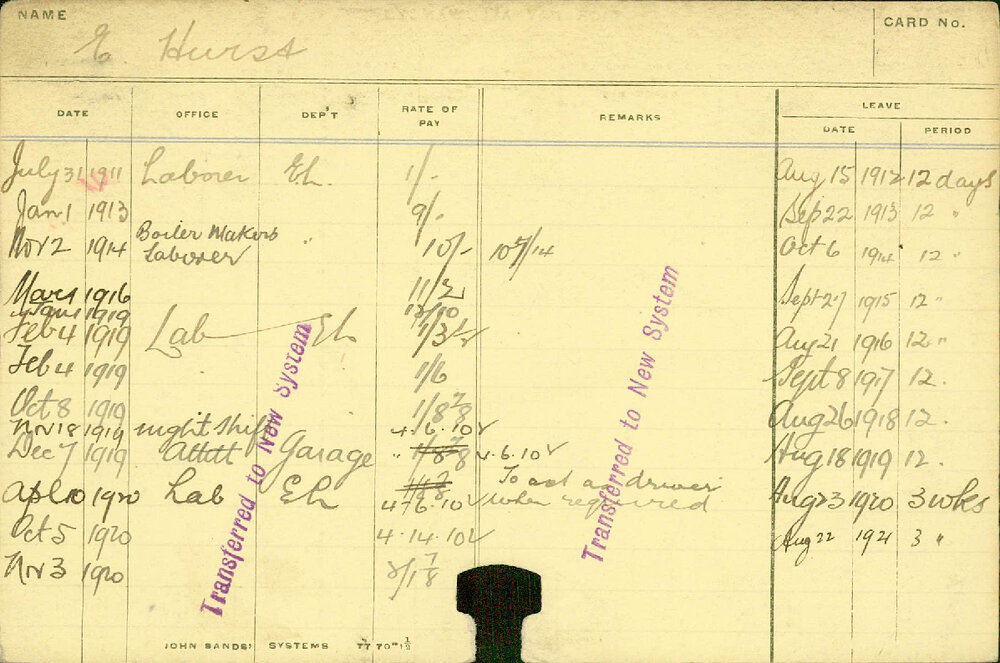 NAME
CARD No.
E Hurst
DATE OFFICE DEP'T RATE OF PAY REMARKS LEAVE
DATE PERIOD
July 31 1911 Laborer El. 1/- Aug 15 1912 12 days
Jan 1 1913 9/- Sep 22 1913 12 "
Nov 2 1914 Boiler Makers Laborer " 10/- Oct 6 1914 12 "
Mar 1 1916 11/ Sept 27 1915 12 "
Jan 1 1919
Feb 4 1919 Lab El Aug 21 1916 12 "
Feb 4 1919 1/6 Sept 8 1917 12 .
Oct 8 1919 1/8 7/8 Aug 26 1918 12 .
Nov 18 1919 night shift 4.6.10
Dec 7 1919 Attdt Garage " 1/8 7/8 4.6.10 Aug 18 1919 12 .
To act as driver
Apl 10 1920 Lab El 4/6.10 when required Aug 23 1920 3 wks
Oct 5 1920 4.14.10 Aug 22 1921 3 "
Nov 3 1920 2/1 7/8
Transferred to New System
Transferred to New System
JOHN SANDS' SYSTEMS